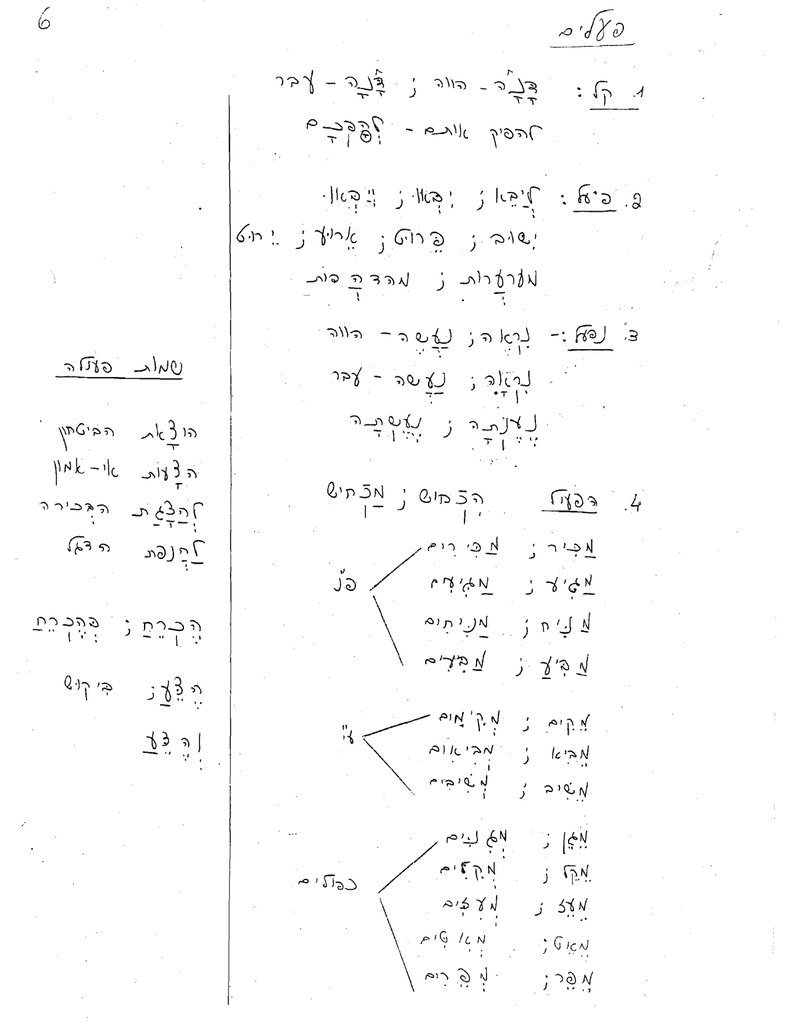 6
פעלים
1. קל: דָּנָה - הווה ; דָּנָה - עבר
להפיק אותם - לְהֲפִקָם
2. פיעל: לְיַבֵּא ; יִבְּאוּ ; וְיִבְּאוּ
יִשּׁוּב ; פֵּרוּט ; אֵרוּעַ ; יֵרוּט
מערערות ; מהדהדות
3. נפעל:- נִרְאֶה ; נַעֲשֶׂה - הווה
נִרְאָה ; נַעֲשָׂה - עבר
נֶעֶנְתָה ; נֶעֶשְׂתָה
4. הפעיל הִצְחִישׁ ; מַצְחִישׁ
מַכִּיר ; מַכִּירִים
מַגִּיעַ ; מַגִּיעִים
פ"נ
מַנִּיחַ ; מַנִּיחִים
מַבִּיעַ ; מַבִּיעִים
מֵקִים ; מְקִימִים
ע"י
מֵבִיא ; מְבִיאִים
מֵשִׁיב ; מְשִׁיבִים
מֵגֵן ; מְגִנִּים
מֵקֵל ; מְקִלִּים
כפולים
מֵעֵז ; מְעִזִּים
מֵאֵט ; מְאִטִּים
מֵפֵר ; מְפֵרִים
שמות פעולה
הוצָאת הביטחון
הצָעות אי-אמון
לְהַצָּגַת הבכירה
לַהֲנָפת הדגל
הֶכְרֵחַ ; בְּהֶכְרֵחַ
הֶצֵּעַ ; ביקוש
וְהֶצֵּעַ